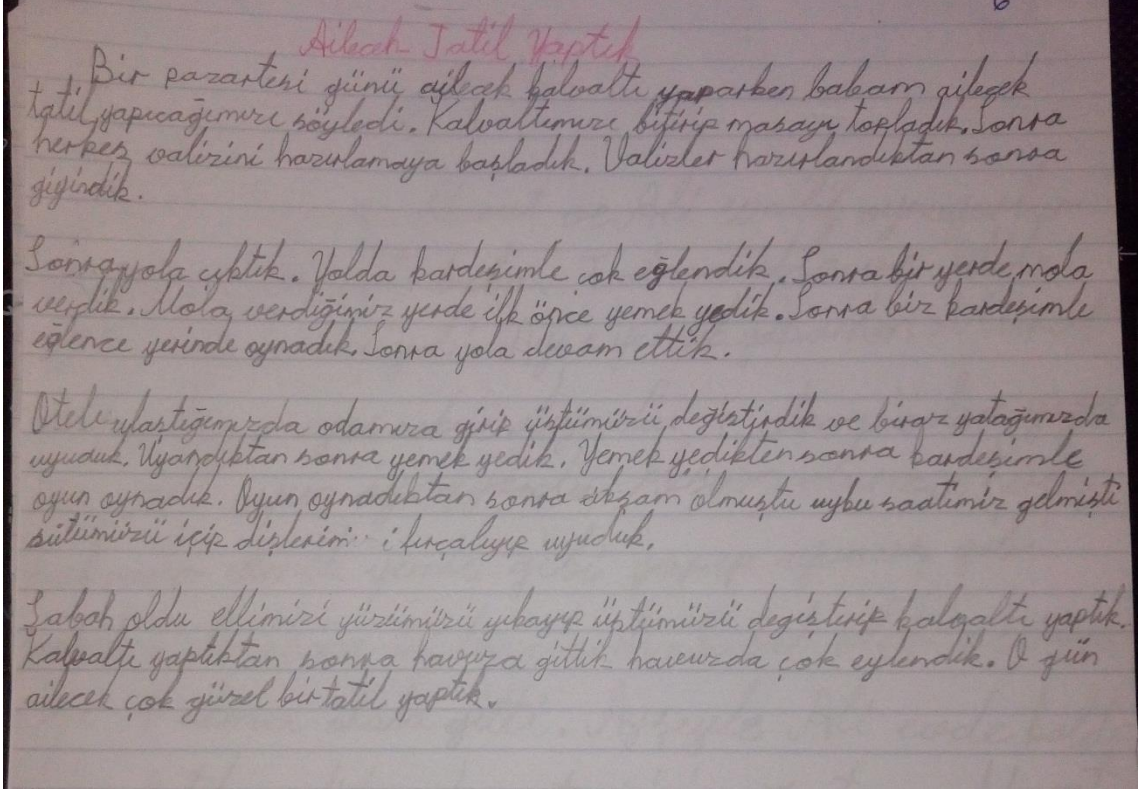 6
Ailecek Tatil Yaptık
Bir pazartesi günü ailecek kalvaltı yaparken babam ailecek
tatil yapıcağımızı söyledi. Kalvaltımızı bitirip masayı topladık. Sonra
herkez valizini hazırlamaya başladık. Valizler hazırlandıktan sonra
giyindik.
Sonra yola çıktık. Yolda kardeşimle çok eğlendik. Sonra bir yerde mola
verdik. Mola verdiğimiz yerde ilk önce yemek yedik. Sonra biz kardeşimle
eğlence yerinde oynadık. Sonra yola devam ettik.
Otele ulaştığımızda odamıza girip üstümüzü değiştirdik ve biraz yatağımızda
uyuduk. Uyandıktan sonra yemek yedik. Yemek yedikten sonra kardeşimle
oyun oynadık. Oyun oynadıktan sonra akşam olmuştu uyku saatimiz gelmişti
sütümüzü içip fırçalıyıp uyuduk.
Sabah oldu ellimizi yüzümüzü yıkayıp üstümüzü değiştirip kalvaltı yaptık.
Kalvaltı yaptıktan sonra havuza gittik havuzda çok eylendik. O gün
ailecek çok güzel bir tatil yaptık.